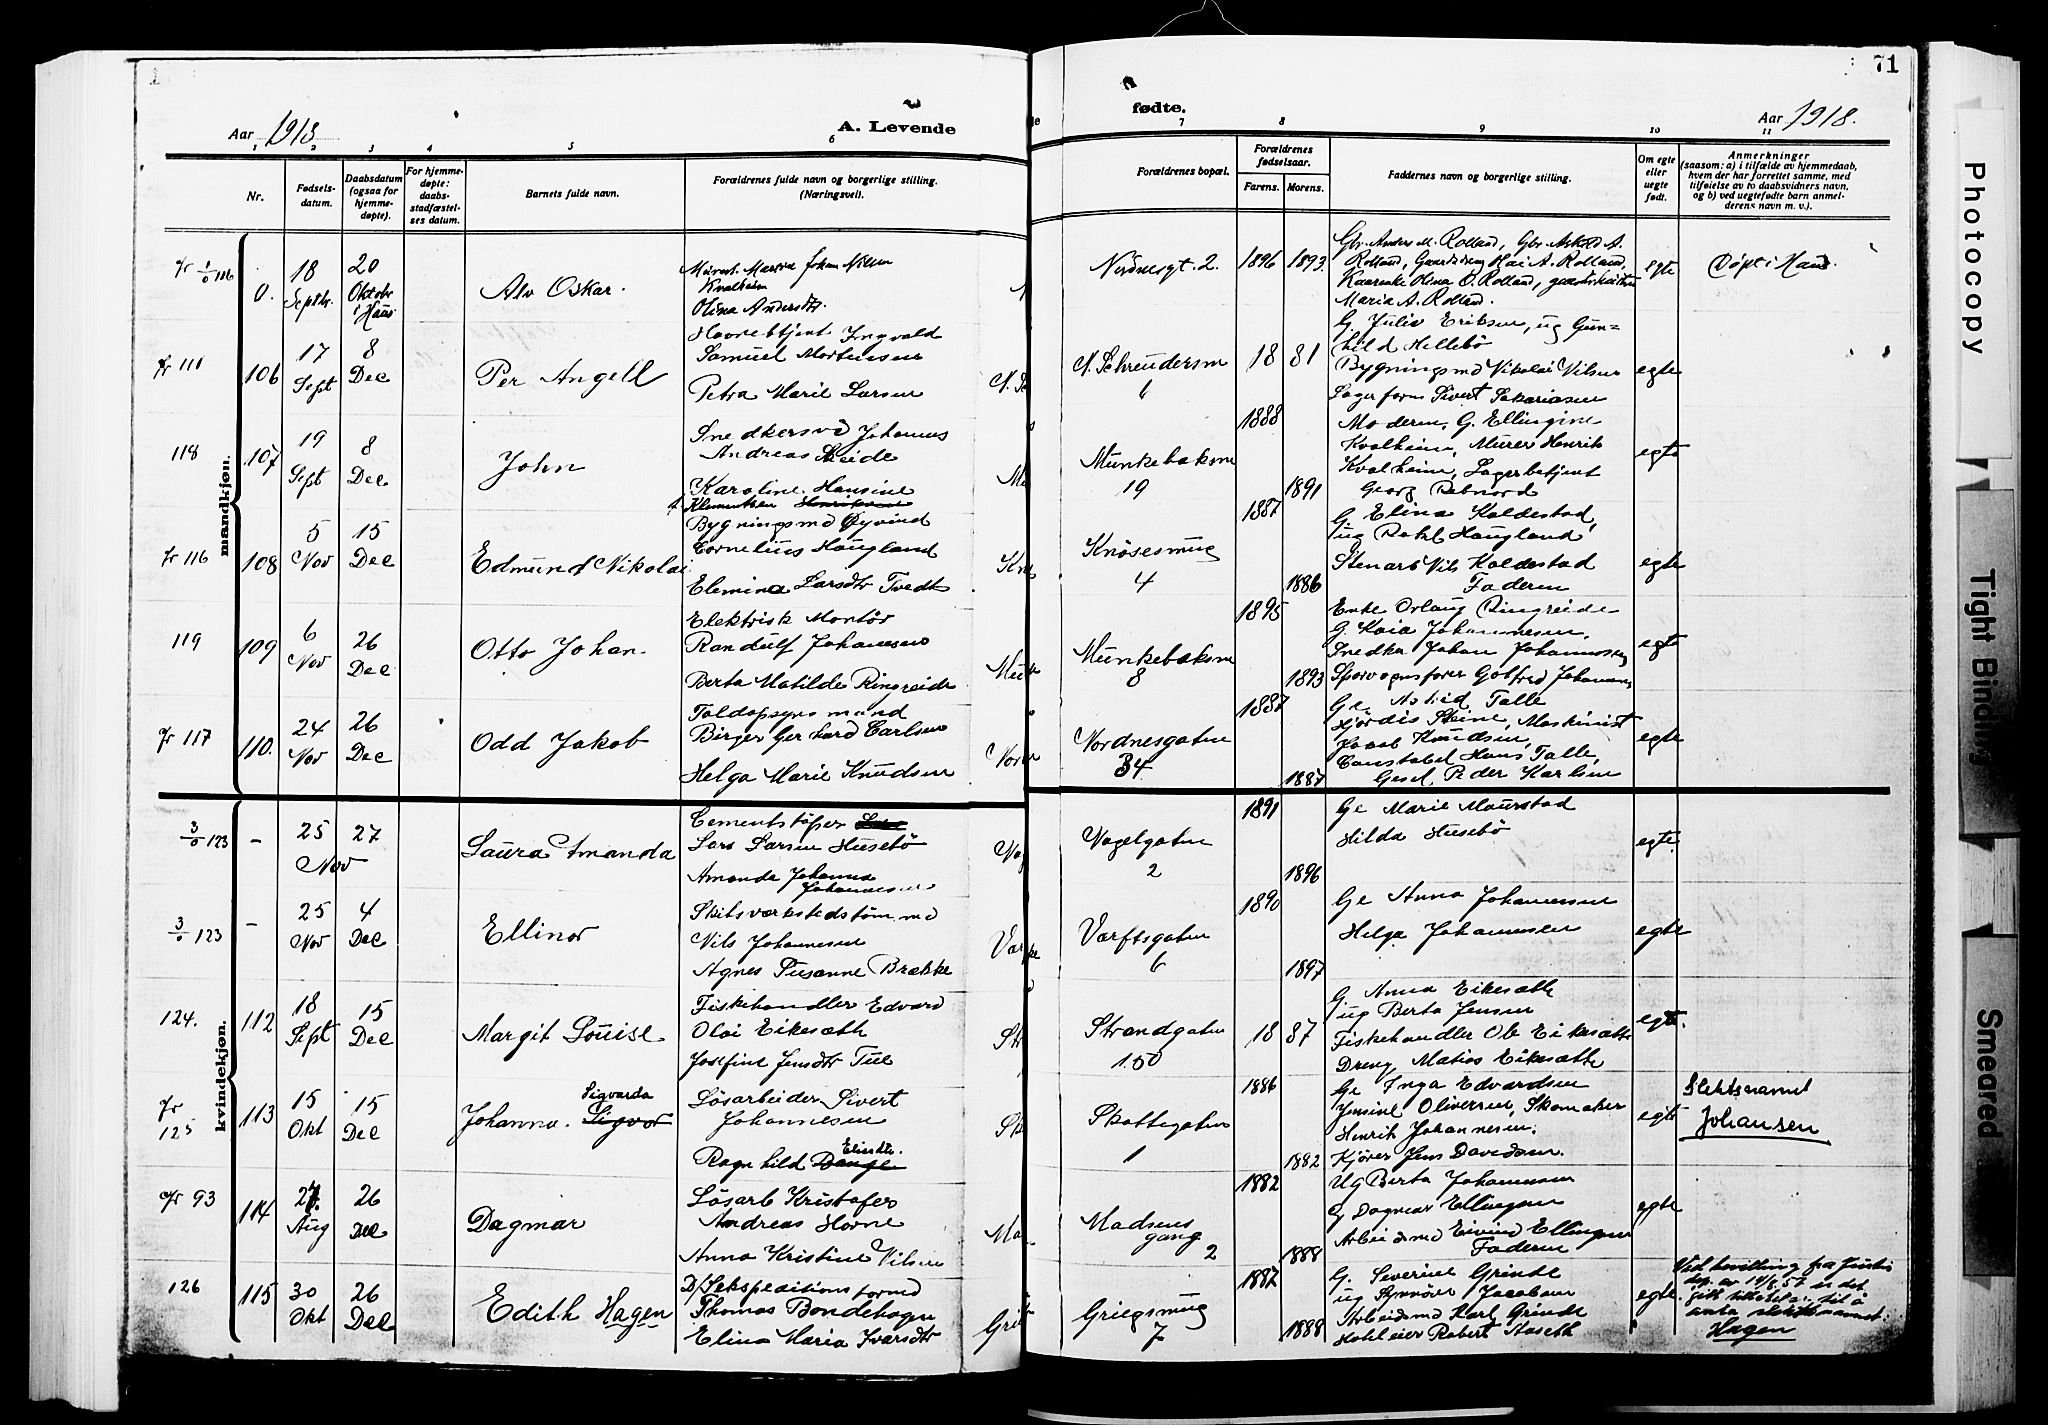 71
Aar 1918
A. Levende
fødte.
Aar 1918.
1 2 3 4 5 6 7 8 9 10 11
Nr.
Fødsels-
datum.
Daabsdatum
(ogsaa for
hjemme-
døpte).
For hjemme-
døpte:
daabs-
stadfæstel-
ses datum.
Barnets fulde navn.
Forældrenes fulde navn og borgerlige stilling.
(Næringsvei).
Forældrenes bopæl.
Forældrenes
fødselsaar.
Farens. Morens.
Faddernes navn og borgerlige stilling.
Om egte
eller
uegte
født.
Anmerkninger
(saasom: a) i tilfælde av hjemmedaab,
hvem der har forrettet samme, med
tilføielse av to daabsvidners navn,
og b) ved uegtefødte barn anmel-
derens navn m. v.).
mandkjøn.
0. 18 Septbr. 20 Oktobr i Haus
Alv Oskar.
Johan Nilsen
Kvalheim
Olina Andersdtr.
Nordnesgt. 2. 1896 1893
Maria A. Rolland.
egte
Døpt i Haus.
fr 111 106 17 Sept 8 Dec
Per Angell
Ingvald
Samuel Mortensen
Petra Marie Larsen
N. Schreudersm
6
18 81
G. Julie Eriksen, ug Gun=
hild Hillebø
Bygningsmd Nikolai Nilsen
Lagerform Sivert Sakariasen
egte
118 107 19 Sept 8 Dec
John
Snedkersvd Johannes
Andreas Skeide
Karoline Hansine
Klementsen
Munkebaksm
19
1888 1891
Moderen, G. Ellingine
Kvalheim, Murer Henrik
Kvalheim, Lagerbetjent
Georg
egte
fr 116 108 5 Nov 15 Dec
Edmund Nikolai
Bygningsmd Øyvind
Cornelius Haugland
Elemina Larsdtr Tvedt
Knøsesmug
4
1887 1886
G. Elina Koldestad,
ug Rakel Haugland
Stenarb Nils Koldestad
Faderen
egte
119 109 6 Nov 26 Dec
Otto Johan.
Elektrisk Montør
Randulf Johannesen
Berta Matilde Ringreide
Munkebaksm
8
1895 1893
Enke Orlaug Ringreide
G. Kaia Johannesen,
Snedker Johan Johannessen
Sporvognsfører Gotfred Johannesen
egte
fr 117 110. 24 Nov 26 Dec
Odd Jakob
Toldopsynsmand
Birger Gerhard Carlsen
Helga Marie Knudsen
Nordnesgaten
34
1887 1887
Ge Astrid Talle
Hjørdis Steine, Maskinist
Jacob Knudsen,
Constabel Hans Talle,
Gesel. Peder Karlsen
egte
kvindekjøn.
3/0 123 – 25 Nov 27
Laura Amanda
Cementstøper
Lars Larsen Husebø
Amanda Johanna
Johannesen
Vagelgaten
2
1891 1896
Ge Marie Maurstad
Hilda Husebø
egte.
3/0 123 – 25 Nov 4 Dec
Ellinor
Skibsværkstedstømmd
Nils Johannesen
Agnes Susanne Brække
Værftsgaten
6
1890 1897
Ge Anna Johannesen
Helga Johannesen
egte
124. 112 18 Sept 15 Dec
Margit Louise
Fiskehandler Edvard
Olai Eikesæth
Josefine Jensdtr Tue
Strandgaten
150
18 87
G Anna Eikesæth
ug Berta Jensen
Fiskehandler Ole Eikesæth
Dreng Matias Eikesæth
egte.
fr 125 113 15 Okt 15 Dec
Johanna. Sigvarda
Sigvor
Løsarbeider Sivert
Johannesen
Ragnhild
Skottegaten
1
1886 1882
Ge Inga Edvardsen
Jensine Oliversen, Skomaker
Henrik Johannesen.
Kjører Jens Davidsen.
egte
Slektsnavnet
Johansen
fr 93 114 27. Aug 26 Dec
Dagmar
Løsarb Kristofer
Andreas Horne
Anna Kristine Nilsen
Madsens
gang
2
1882 1888
Ug Berta Johannesen
G Dagmar Ellingsen
Arbeidsmd Eivind Ellingsen
Faderen
egte
126 115 30 Okt 26 Dec
Edith Hagen
D/Sekspeditionsformd
Thomas Bondehagen
Elina Maria Ivarsdtr
Griegsmug
7
1887 1888
G. Severine Grinde
ug Synnøve Jacobsen
Arbeidsmd Karl Grinde
Hoteleier Robert Aaseth
egte
Ved bevilling fra Justis
dep. av 14/8.57 er det
gitt tillatelse til å
anta slektsnavnet:
Hagen
Photocopy
Tight Binding
Smeared